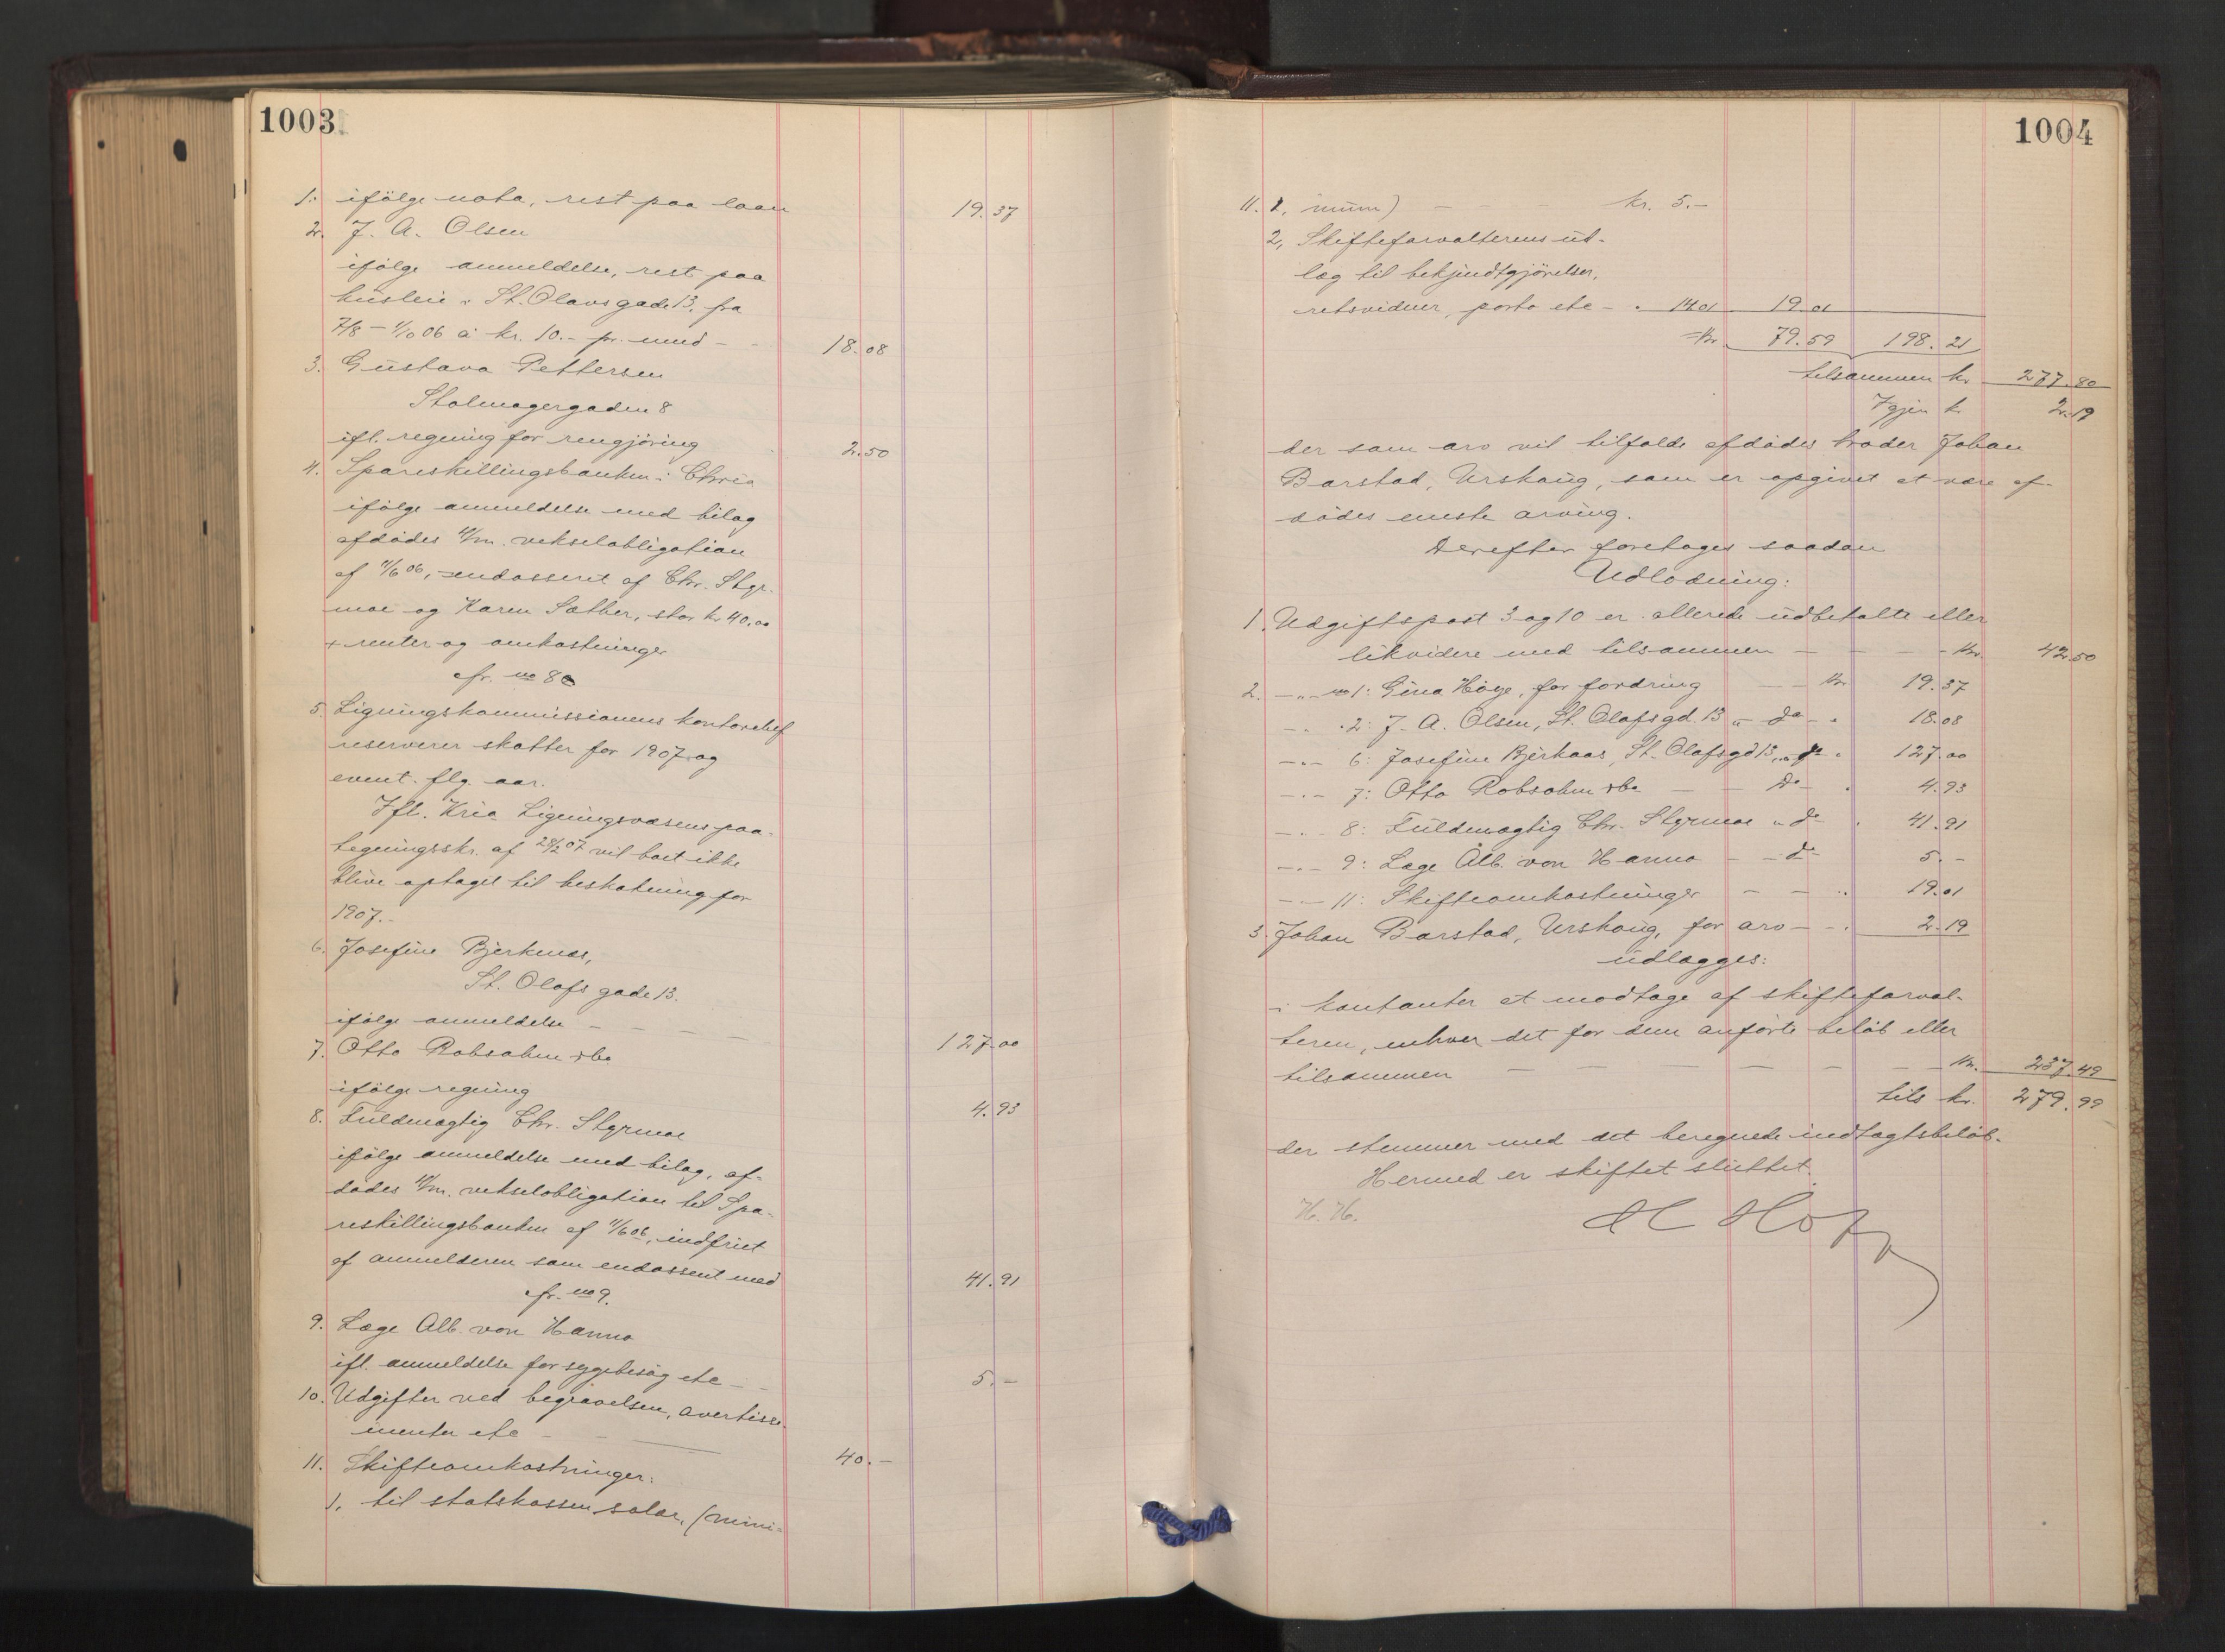 1003
1. ifölge nota, rest paa laan 19.37
2. J. A. Olsen
ifölge anmeldelse, rest paa
husleie i St. Olavsgade 13, fra
7/8 – 1/10 06 a kr. 10.– pr. mnd – 18.08
3. Gustava Pettersen
Stolmagergaden 8
ifl. regning for rengjöring 2.50
4. Spareskillingsbanken i Chria
ifölge anmeldelse med bilag
afdödes 4/m. vekselobligation
af 11/6 06, endosseret af Chr. Styr-
moe og Karen Sæther, stor kr 40.00
+ renter og omkostninger
cfr. no 8
5. Ligningskommissionens kontorchef
reserverer skatter for 1907 og
event. flg. aar.
Ifl. Kria Ligningsvæsens paa-
tegningsskr. af 28/2 07 vil boet ikke
blive optaget til beskatning for
1907.–
6. Josefine Bjerkenæs,
St. Olafs gade 13.
ifölge anmeldelse – – – – 127.00
7. Otto Robsahm & Co
ifölge regning 4.93
8. Fuldmægtig Chr. Styrmoe
ifölge anmeldelse med bilag, af-
dödes 4/m. vekselobligation til Spa-
reskillingsbanken af 11/6 06, indfriet
af anmelderen som endossent med 41.91
cfr. no 9.
9. Læge Alb. von Hanno
ifl. anmeldelse for sygebesög etc – 5.–
10. Udgifter ved begravelsen, avertisse-
menter etc – 40.–
11. Skifteomkostninger:
1, til statskassen salær, (mini-
1004
11. 1, mum) – – – kr. 5.–
2, Skifteforvalterens ud-
læg til bekjendtgjörelser,
retsvidner, porto etc – " 14.01 19.01
Kr. 79.59 198.21
tilsammen kr 277.80
Igjen kr. 2.19
der som arv vil tilfalde afdödes broder Johan
Barstad, Urskoug, som er opgivet at være af-
dödes eneste arving.
Derefter foretages saadan
Udlodning:
1. Udgiftspost 3 og 10 er allerede udbetalte eller
likvidere med tilsammen – – – – Kr. 42.50
2. –"– no 1: Gina Höye, for fordring – – Kr 19.37
–"– " 2: J. A. Olsen, St. Olafsgd. 13 " do – " 18.08
–"– 6: Josefine Bjerkaas, St. Olafsgd 13, " do " 127.00
–"– 7: Otto Robsahm & Co – – Do – " 4.93
–"– 8: Fuldmægtig Chr. Styrmoe " do " 41.91
–"– 9: Læge Alb. von Hanno – – do 5.–
–"– 11: Skifteomkostninger – – " 19.01
3. Johan Barstad, Urskoug, for arv – – " 2.19
udlægges:
i kontanter at modtage af skifteforval-
teren, enhver det for dem anförte belöb eller
tilsammen – – – – – – – Kr. 237.49
tils kr. 279.99
der stemmer med det beregnede indtægtsbelöb.
Hermed er skiftet sluttet.
H. H.